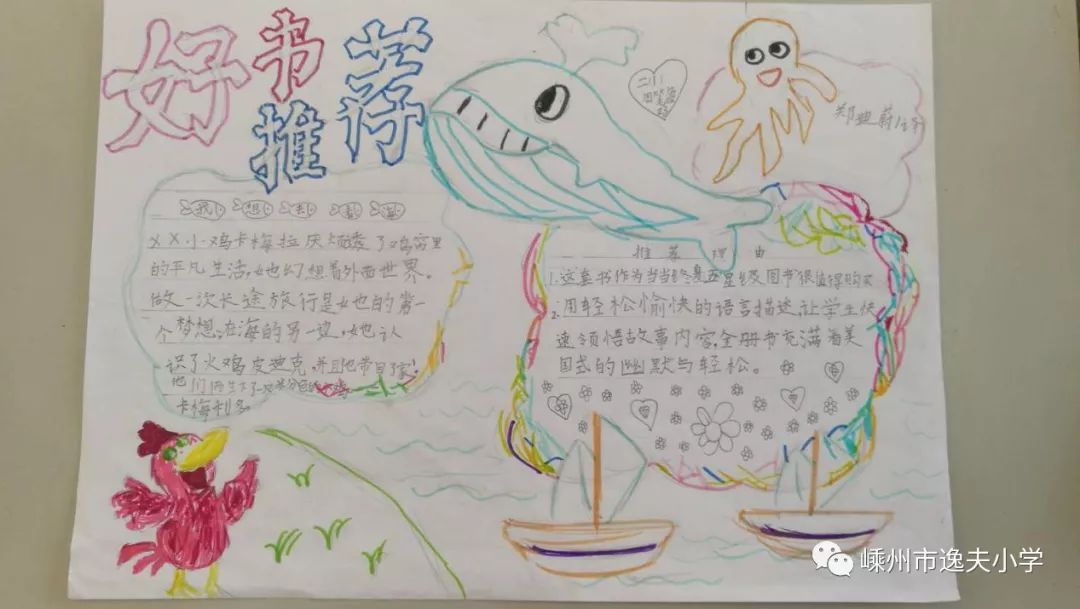 好书
推荐
二(1)
郑迪蔚
我想去看海
XX小鸡卡梅拉厌烦透了鸡窝里
的平凡生活,她幻想着外面世界。
做一次长途旅行是她的第一
个梦想,在海的另一边,她认
识了火鸡皮迪克,并且他带回了家!
他们再生下了
卡梅利多。
推荐理由
1.这套书作为当当终身五星级图书很值得购买
2.用轻松愉快的语言描述,让学生快
速领悟故事内容,全册书充满着美
国式的幽默与轻松。
嵊州市逸夫小学